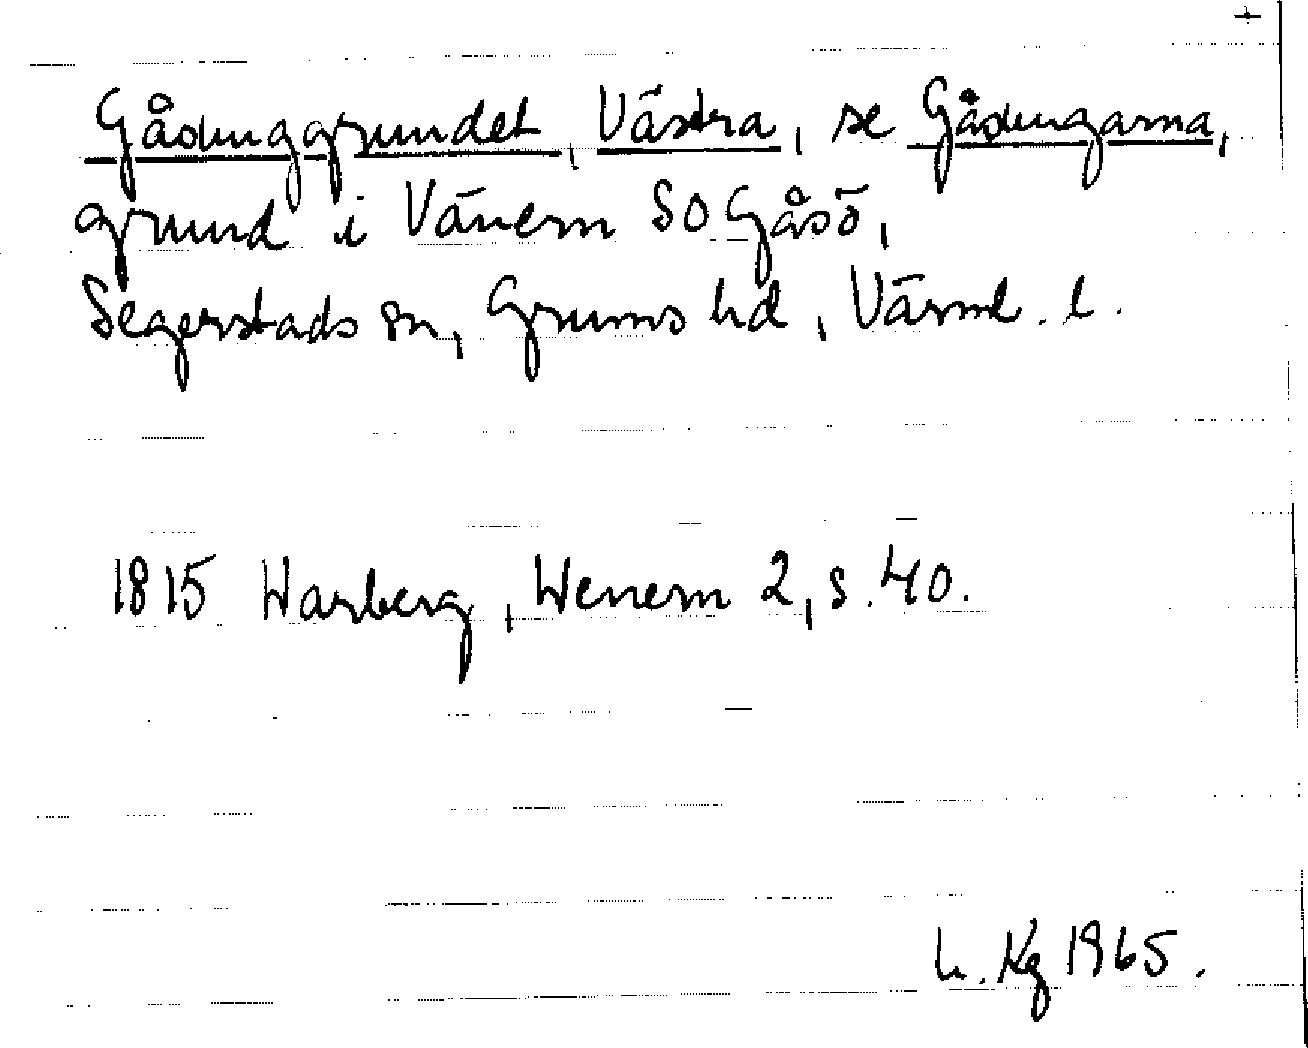 +
Gåsunggrundet, Västra, se Gåsungarna,
grund i Vänern SO Gåsö,
Segerstads sn, Grums hd, Värml. l.
1815 Warberg, Wenern 2, s. 40.
L. Kg 1965.